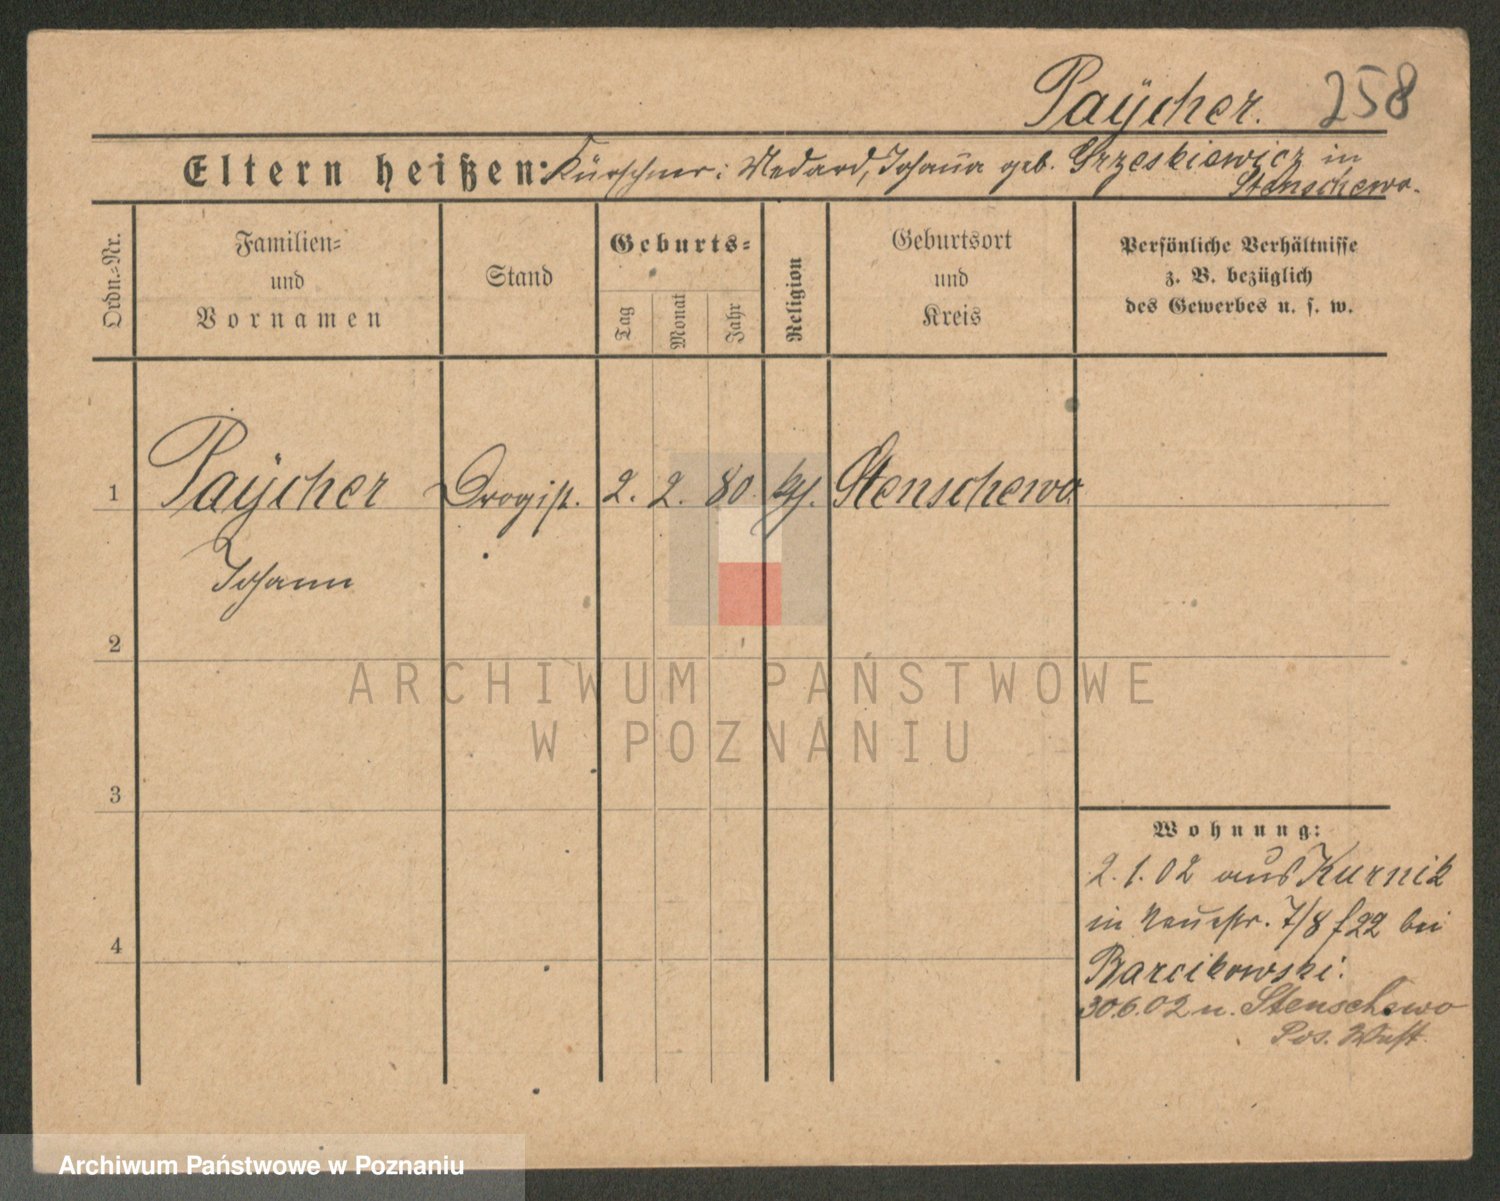 Paÿcher. 258
Eltern heißen: Kürschner: Medard, Johanna geb. Grzeskiewicz in
Stenschewo.
Ordn.=Nr.
Familien=
und
Vornamen
Stand
Geburts=
Tag
Monat
Jahr
Religion
Geburtsort
und
Kreis
Persönliche Verhältnisse
z. B. bezüglich
des Gewerbes u. s. w.
1 Paÿcher Drogist. 2. 2. 80. kth. Stenschewo
Johann
2
3
4
ARCHIWUM PAŃSTWOWE
W POZNANIU
Wohnung:
2.1.02 aus Kurnik
in Neuestr. 7/8 f 22 bei
Barcikowski.
30.6.02 n. Stenschewo
Pos. West.
Archiwum Państwowe w Poznaniu